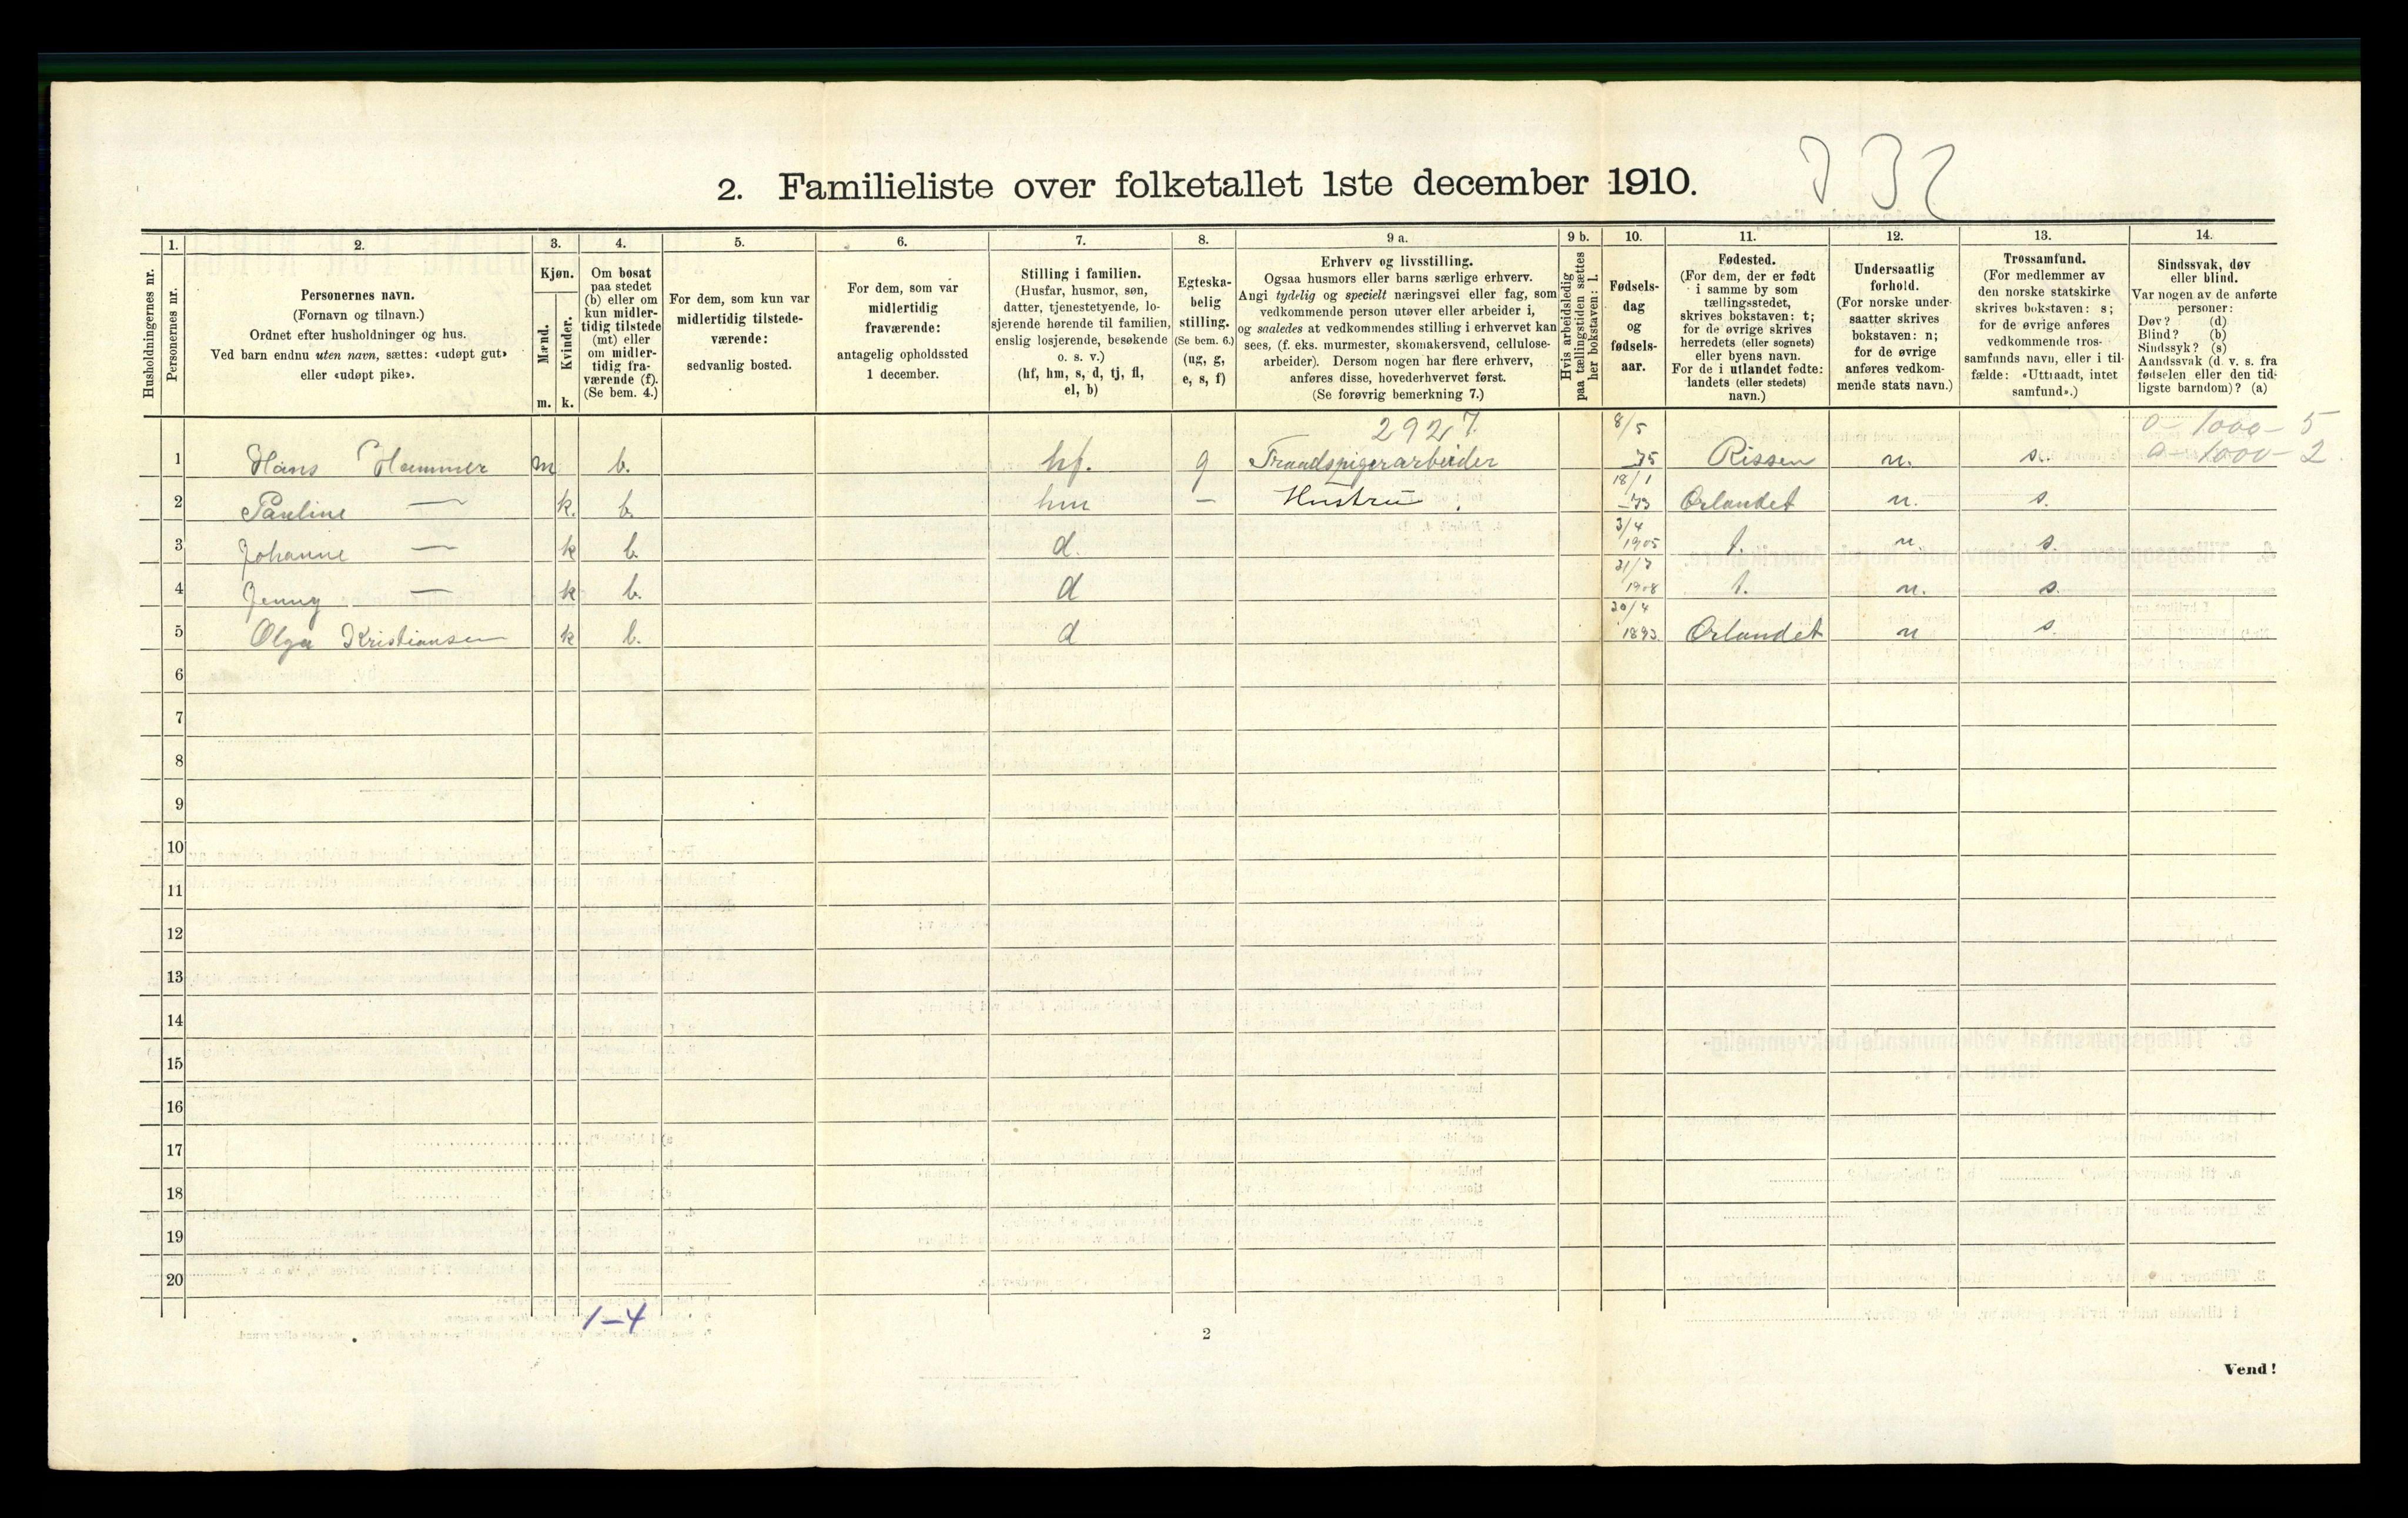 2. Familieliste over folketallet 1ste december 1910.
Husholdningernes nr.
1. Personernes nr.
2.
Personernes navn.
(Fornavn og tilnavn.)
Ordnet efter husholdninger og hus.
Ved barn endnu uten navn, sættes: «udøpt gut»
eller «udøpt pike».
3.
Kjøn.
Mænd. m.
Kvinder. k.
4.
Om bosat
paa stedet
(b) eller om
kun midler-
tidig tilstede
(mt) eller
om midler-
tidig fra-
værende (f).
(Se bem. 4.)
5.
For dem, som kun var
midlertidig tilstede-
værende:
sedvanlig bosted.
6.
For dem, som var
midlertidig
fraværende:
antagelig opholdssted
1 december.
7.
Stilling i familien.
(Husfar, husmor, søn,
datter, tjenestetyende, lo-
sjerende hørende til familien,
enslig losjerende, besøkende
o. s. v.)
(hf, hm, s, d, tj, fl,
el, b)
8.
Egteska-
belig
stilling.
(Se bem. 6.)
(ug, g,
e, s, f)
9 a.
Erhverv og livsstilling.
Ogsaa husmors eller barns særlige erhverv.
Angi tydelig og specielt næringsvei eller fag, som
vedkommende person utøver eller arbeider i,
og saaledes at vedkommendes stilling i erhvervet kan
sees, (f. eks. murmester, skomakersvend, cellulose-
arbeider). Dersom nogen har flere erhverv,
anføres disse, hovederhvervet først.
(Se forøvrig bemerkning 7.)
9 b.
Hvis arbeidsledig
paa tællingstiden sættes
her bokstaven: l.
10.
Fødsels-
dag
og
fødsels-
aar.
11.
Fødested.
(For dem, der er født
i samme by som
tællingsstedet,
skrives bokstaven: t;
for de øvrige skrives
herredets (eller sognets)
eller byens navn.
For de i utlandet fødte:
landets (eller stedets)
navn.)
12.
Undersaatlig
forhold.
(For norske under-
saatter skrives
bokstaven: n;
for de øvrige
anføres vedkom-
mende stats navn.)
13.
Trossamfund.
(For medlemmer av
den norske statskirke
skrives bokstaven: s;
for de øvrige anføres
vedkommende tros-
samfunds navn, eller i til-
fælde: «Uttraadt, intet
samfund».)
14.
Sindssvak, døv
eller blind.
Var nogen av de anførte
personer:
Døv? (d)
Blind? (b)
Sindssyk? (s)
Aandssvak (d. v. s. fra
fødselen eller den tid-
ligste barndom)? (a)
2927. 8/5 0-1000-5
1 Hans Hammer m b. hf. g Traadspigerarbeider 75 Rissen n. s. 0-1000-2
18/1
2 Pauline — k. b. hm — Hustru. 73 Ørlandet n. s.
3/4
3 Johanne — k b. d. 1905 t. n. s.
4 Jenny — k b. d 1908 t. n. s.
20/4
5 Olga Kristiansen k b. d 1893 Ørlandet n s.
6
7
8
9
10
11
12
13
14
15
16
17
18
19
20
1-4
2
Vend!